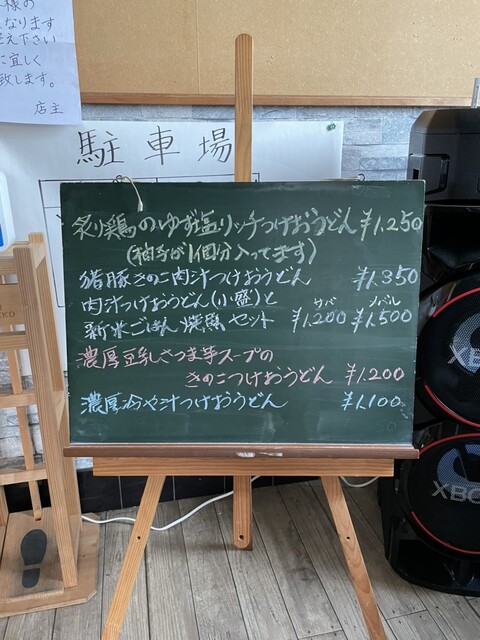 様の
なります
控え下さい
に宜しく
致します。
店主
駐車場
炙り鶏のゆず塩リッチつけおうどん ¥1,250
(柚子が1個分入ってます)
猪豚きのこ肉汁つけおうどん ¥1,350
肉汁つけおうどん(小盛)と サバ ノドグロ
新米ごはん 焼魚 セット ¥1,200 ¥1,500
濃厚豆乳さつま芋スープの
きのこつけおうどん ¥1,200
濃厚冷や汁つけおうどん ¥1,100
XBO
XBO